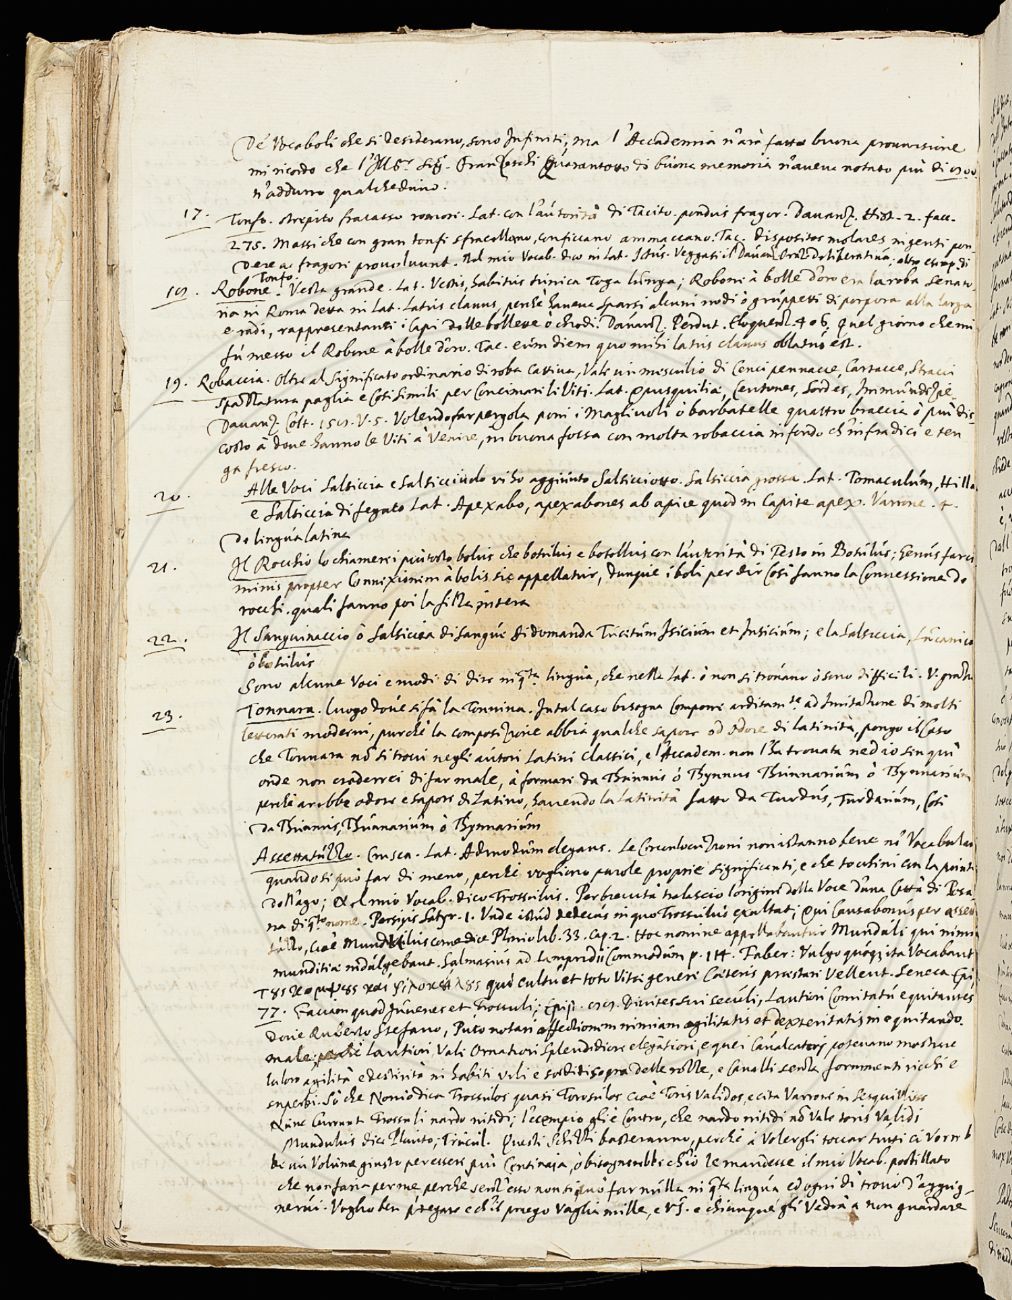 De' Vocaboli che si desiderano, sono Infiniti, ma l'Accademia n'arà fatta buona provisione
mi ricordo che l' Sig.r Franceschi Quarantotto di buona memoria n'aveva notato più di
n'addurrò qualcheduno.
17. Tonfo. strepito fracasso romore. Lat. con l'autorità di Tacito. pondus fragor. Davanz. Hist. 2. facc.
275. Massi che con gran tonfi sfracellano, conficcano ammaccano. Tac. dispositos molares ingenti pon
dere ac fragore provolvunt. Nel mio Vocab. dico in Lat. Ictus. Veggasi il Davanz. oltre esemp. di
Tonfo.
18. Robone. Vesta grande. Lat. Vestis, habitus tunica Toga lunga; Roboni à bolle d'oro era la roba Senato
ria in Roma detta in Lat. Latus clavus, perche haveva sparsi alcuni nodi ò gruppetti di porpora alla larga
e radi, rappresentanti i Capi delle bollette ò chiodi. Davanz. Perdut. Eloquenz. 406. Quel giorno che mi
fù messo il Robone à bolle d'oro. Tac. eum diem quo mihi latus clavus oblatus est.
19. Robaccia. Oltre al Significato ordinario di roba Cattiva, Vale un mescuglio di Cenci pennacce, Cartacce, Stracci
Spazzatura paglia e Cose Simili per Concimar li Viti. Lat. Quisquilia, Centones, Sordes, Immundizie.
Davanz. Colt. 158. V. 5. Volendo far pergola poni i Magliuoli ò barbatelle quattro braccia ò più dis
costo à dove hanno le Viti à Venire, in buona fossa con molta robaccia in fondo ch'infradici e ten
ga fresco.
20. Alle Voci Salsiccia e Salsicciuolo vi hò aggiunto Salsicciotto. Salsiccia grossa. Lat. Tomaculum, Hilla
e Salsiccia di fegato Lat. Apexabo, apexabones ab apice quod in Capite apex. Varrone. 4.
De lingua latina
21. Il Rocchio lo chiamerei più tosto bolus che botulus e botellus con l'autorità di Festo in Botulus; genus farci
minis propter Connexionem à bolis sic appellatur, dunque i boli per dir Così fanno la Connessione de
rocchi. quali fanno poi la filza intera
22. Il Sanguinaccio ò Salsiccia di sangue si domanda Tucetum Isicium et Insicium; e la Salsiccia, Lucanica
ò botulus
Sono alcune Voci e modi di dire in q.ta lingua, che nella Lat. ò non si trovano ò sono difficili. V. gratia
23. Tonnara. luogo dove si fà la Tonnina. In tal caso bisogna Comporre arditam.te ad Imitazione di molti
letterati moderni, purche la composizione abbia qualche sapore od odore di latinità, pongo il Caso
che Tonnara nõ si trovi negli autori Latini Classici, e l'Accadem. non l'hà trovata ned io sin quì
onde non crederrei di far male, à formare da Thinnus ò Thynnus Thinnarium ò Thynnarium
perche arebbe odore e sapore di Latino, havendo la latinità fatto da Turdus, Turdarium, Così
da Thinnus, Thinnarium ò Thynnarium
Assettatuzzo. Crusca. Lat. Admodum elegans. Le Circunlocuzioni non istanno bene ne' Vocabolari
quando si può far di meno, perche vogliono parole proprie significanti, e che tocchino con la punta
dell'ago; & nel mio Vocab. dico Trossulus. Per brevità tralascio l'origine della Voce d'una Città di Tosca
na di q.to nome. Persius Satyr. 1. Unde istud dedecus in quo Trossulus exultat; qui Causabonus per assetta
tuzzo, cioè Mundulus come dice Plinio lib. 33. Cap. 2. Hoc nomine appellabantur Munduli qui nimia
munditia indulgebant. Salmasius ad Lampridii Commodum p. 114. Faber: Vulgo quoque ita Vocabant
qui cultu et toto Vitæ genere Cæteris præstare vellent. Seneca Epi.
77. Faciam quod Juvenes et Trossuli; Epist. 87. Divites sui seculi, Lautiori Comitatu equitantes
dove Ruberto Stefano, Puto notari affectionem nimiam agilitatis et dexteritatis in equitando.
male perche Lautiori, Vali Ornatiori splendidiore elegantiori, e quei Cavalcatori potevano mostrare
la loro agilità e destrezza in habiti vili e sordidi sopra delle rozze, e Cavalli senza fornimenti ricchi e
superbi. Sò che Nonio dica Trossulos quasi Torosulos cioè Toris Validos, e cita Varrone in Sesquiulixe
Nunc Currunt Trossuli nardo nitidi; l'esempio gli è Contro, che nardo nitidi nõ Vale toris Validi
Mundulus dice Plauto, Trucul. Questi schizzi basteranno, perchè à Volergli toccar tutti ci Vorreb
be un Volume giusto per essere più Centinaja, ò bisognerebbe ch'io le mandasse il mio Vocab. postillato
che non faria per me perche senz'esso non si può far nulla in q.ta lingua ed ogni dì trovo d'aggiug-
nervi. Voglio ben pregare e ch'il priego Vaglia mille, e V.S. e chiunque gli Vedrà a non guardare